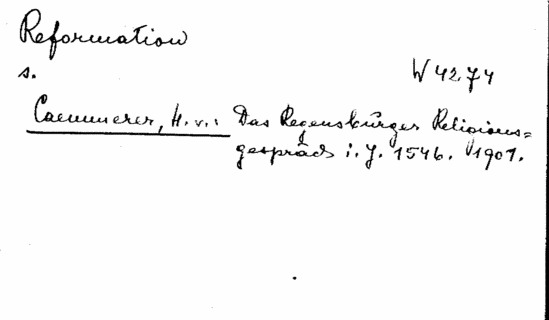 Reformation
s. W 4274
Caemmerer, H. v.: Das Regensburger Religions=
gespräch i. J. 1546. 1901.